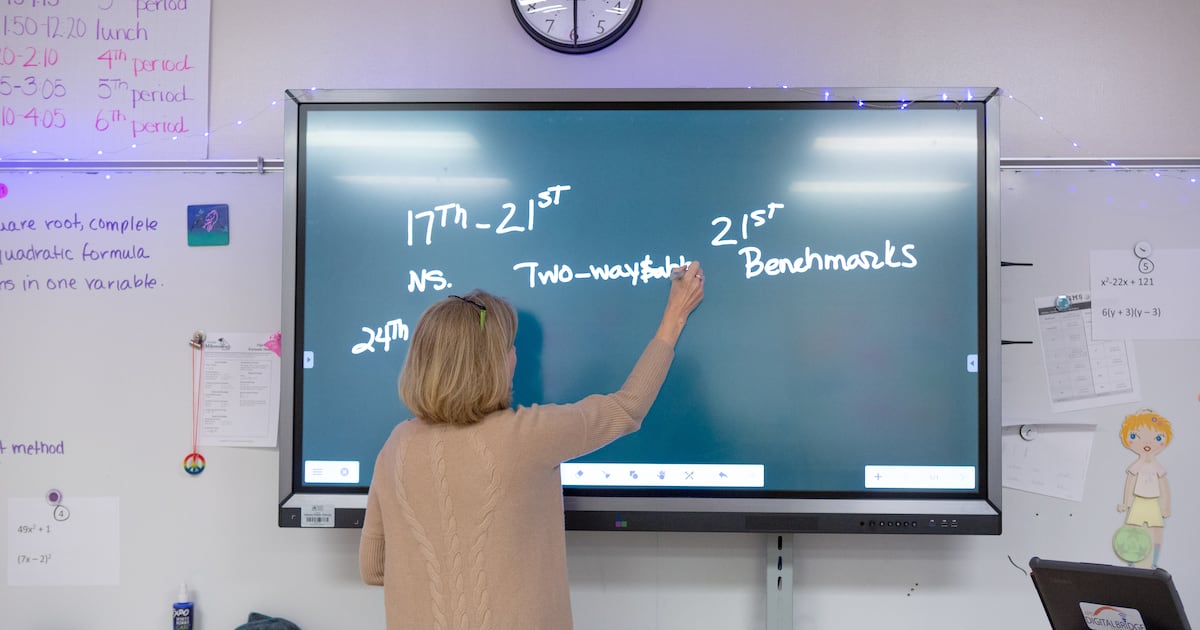 period
1:50-12:20 lunch
0-2:10 4Th period
5-3:05 5Th period
10-4:05 6Th period
7 6 5
uare root, complete
quadratic formula
s in one variable.
t method
4
49x² + 1
(7x – 2)²
17Th - 21ST
NS. Two-way
24Th
21ST
Benchmarks
1/1
5
x²-22x + 121
6(y + 3)(y – 3)
EXPO
DIGITALBRIDGE